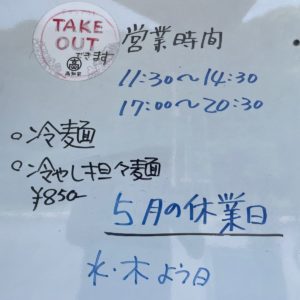 TAKE
OUT
できます
営業時間
11:30〜14:30
17:00〜20:30
○冷麺
○冷やし担々麺
¥850-
5月の休業日
水・木よう日